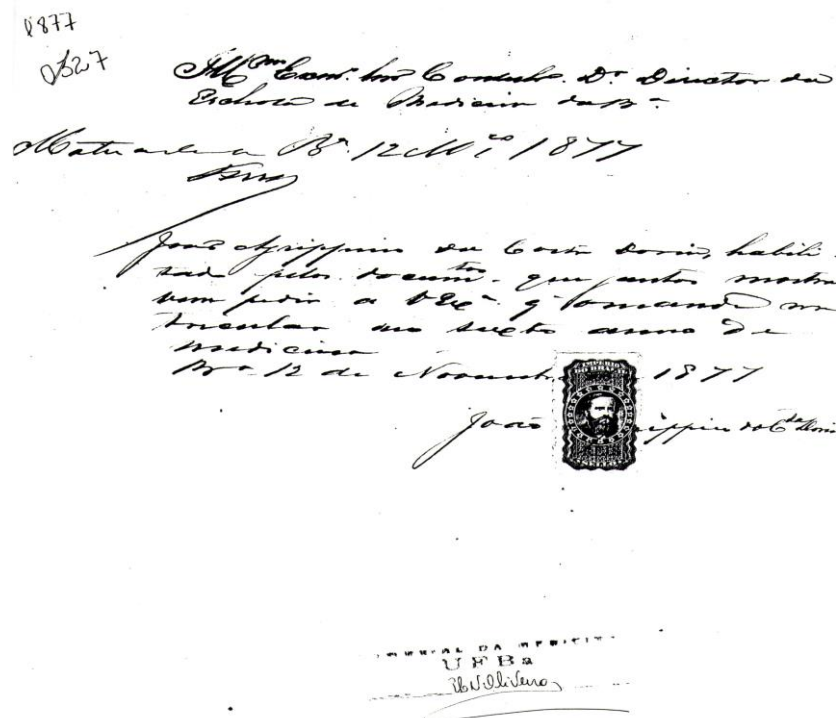 1877
Illmo Exmo Snr Conselho Dr Director da
Eschola de Medicina da Ba
Matricule-se Ba 12 1877
João Agrippino da Costa Doria, habili
tado pelos documtos que juntos mostra
vem pedir a VExa q o mande ma
tricular no sexto anno de
medicina
Ba 12 de Novembro 1877
João Agrippino da Cta Doria
MEMORIAL DA MEDICINA
UFBa